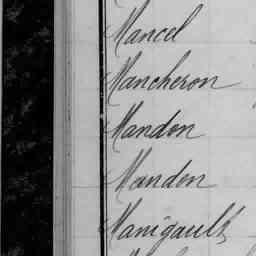 Mancel
Mancheron
Mandon
Mandon
Manigault